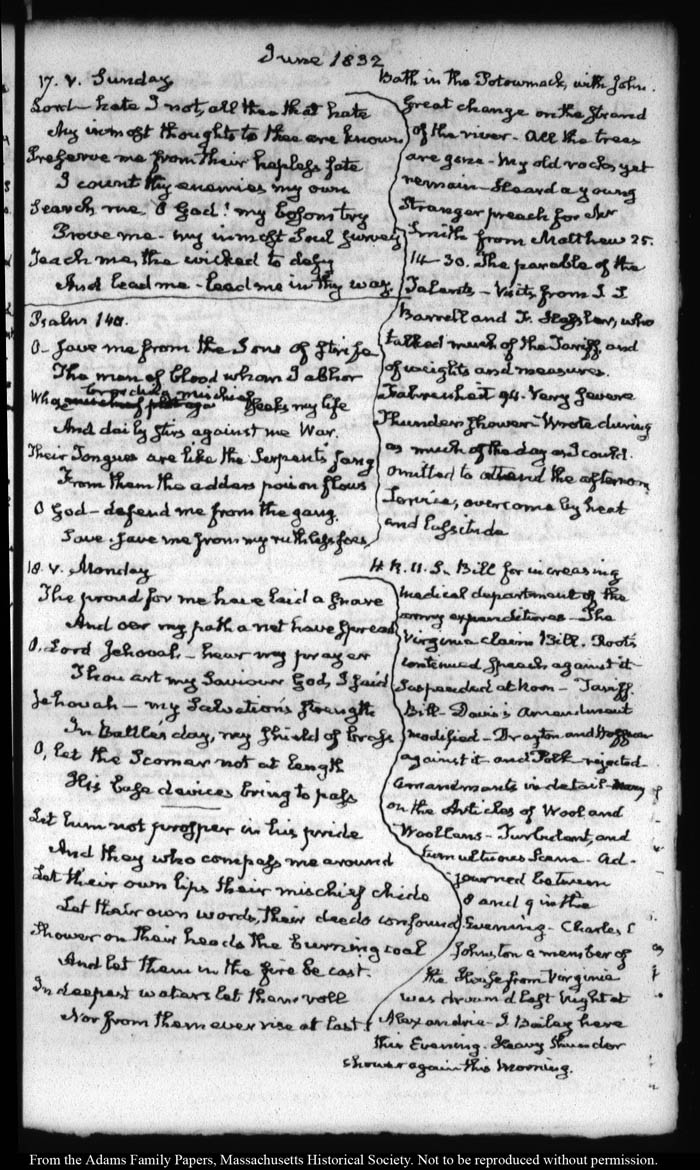 June 1832
17. V. Sunday
Lord hate I not, all thee that hate
My inmost thoughts to thee are known
Preserve me from their hapless fate
I count thy enemies my own
Search me O God! my bosom try
Prove me - my inmost Soul survey
Teach me, the wicked to defy
And lead me - lead me in thy way.
Psalm 140.
O - save me from the Sons of strife
The men of blood whom I abhor
Whose brooding mischief seeks my life
And daily stirs against me War.
Their Tongues are like the Serpent's fang
From them the adders poison flows
O God - defend me from the gang.
Save - save me from my ruthless foes
18. V. Monday
The proud for me have laid a snare
And oer my path a net have spread
O, Lord Jehovah - hear my prayer
Thou art my Saviour God, I said
Jehovah - my Salvation's strength
In Battle's day, my shield of brass
O, let the Scorner not at length
His base devices bring to pass
Let him not prosper in his pride
And they who compass me around
Let their own lips their mischief chide
Let their own words, their deeds confound
Shower on their heads the burning coal
And let them in the fire be cast.
In deepest waters let them roll
Nor from them ever rise at last!
Bath in the Potowmack, with John.
Great change on the strand
of the river - All the trees
are gone - My old rocks yet
remain - Heard a young
Stranger preach for Mr
Smith from Matthew 25.
14-30. The parable of the
Talents - Visits from
Barrell and F. Hassler, who
talked much of the Tariff, and
of weights and measures.
Fahrenheit 94. Very severe
Thunder shower - Wrote during
as much of the day as I could.
Omitted to attend the afternoon
Service, overcome by heat
and lassitude
H. R. U.S. Bill for increasing
medical department of the
army expenditures - The
Virginia claims Bill. Root
continued speech against it
Suspended at Noon - Tariff
Bill - Davis's Amendment
modified - Drayton and Hoffman
against it and Polk - rejected
Amendments in detail many
on the Articles of Wool and
Woollens - Turbulent, and
tumultuous Scene - Ad-
journed between
8 and 9 in the
Evening - Charles C
Johnston a member of
the House from Virginia
was drowned last Night at
Alexandria - J. Bailey here
this Evening. Heavy thunder
shower again this Morning.
From the Adams Family Papers, Massachusetts Historical Society. Not to be reproduced without permission.